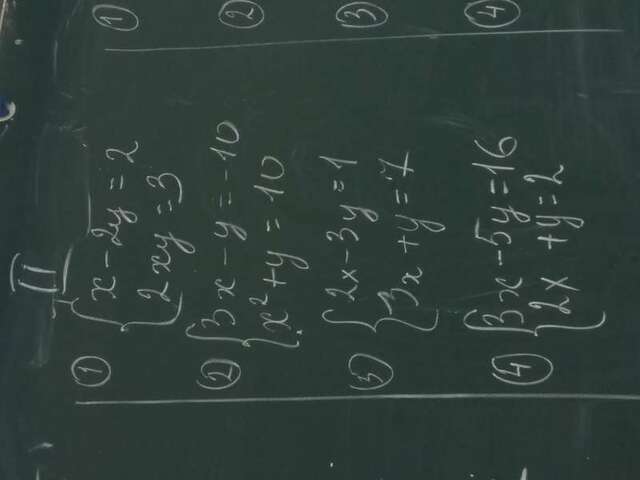 II
① { x - 2y = 2
2xy = 3
② { 3x - y = -10
x² + y = 10
③ { 2x - 3y = 1
3x + y = 7
④ { 3x - 5y = 16
2x + y = 2
①
②
③
④